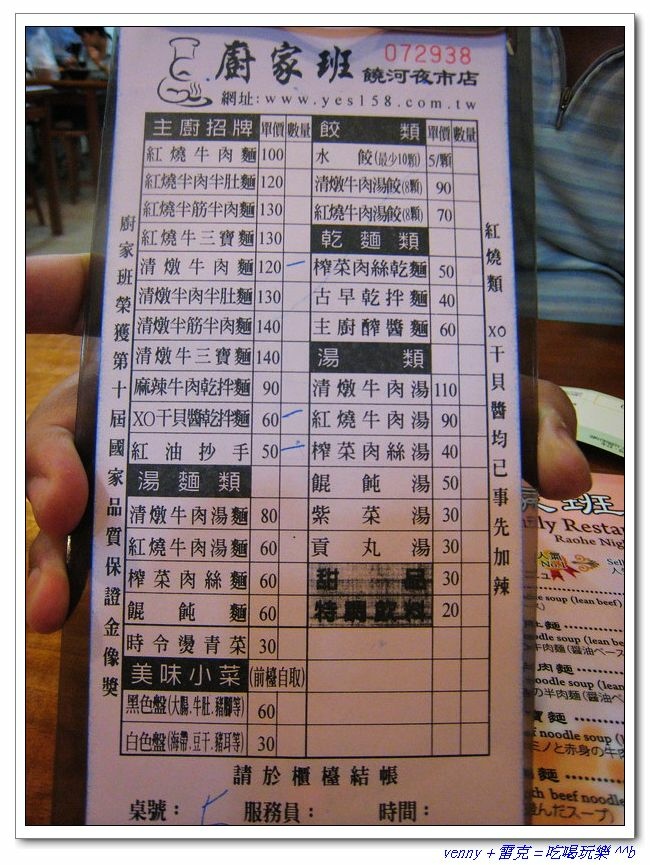 廚家班
072938
饒河夜市店
網址:www.yes158.com.tw
主廚招牌 單價 數量
紅燒牛肉麵 100
紅燒半肉半肚麵 120
紅燒半筋半肉麵 130
紅燒牛三寶麵 130
清燉牛肉麵 120
清燉半肉半肚麵 130
清燉半筋半肉麵 140
清燉牛三寶麵 140
麻辣牛肉乾拌麵 90
XO干貝醬乾拌麵 60
紅油抄手 50
湯麵類
清燉牛肉湯麵 80
紅燒牛肉湯麵 60
榨菜肉絲麵 60
餛飩麵 60
時令燙青菜 30
美味小菜 (前檯自取)
黑色盤(大腸.牛肚.豬腳等) 60
白色盤(海帶.豆干.豬耳等) 30
餃類 單價 數量
水餃(最少10顆) 5/顆
清燉牛肉湯餃(8顆) 90
紅燒牛肉湯餃(8顆) 70
乾麵類
榨菜肉絲乾麵 50
古早乾拌麵 40
主廚醡醬麵 60
湯類
清燉牛肉湯 110
紅燒牛肉湯 90
榨菜肉絲湯 40
餛飩湯 50
紫菜湯 30
貢丸湯 30
甜品 30
特調飲料 20
廚家班榮獲第十屆國家品質保證金像獎
紅燒類 XO干貝醬均已事先加辣
請於櫃檯結帳
桌號： 服務員： 時間：
班
Raohe Nig
noodle soup (lean
noodle soup (
beef noodle
venny + 雷克 = 吃喝玩樂 ^^b